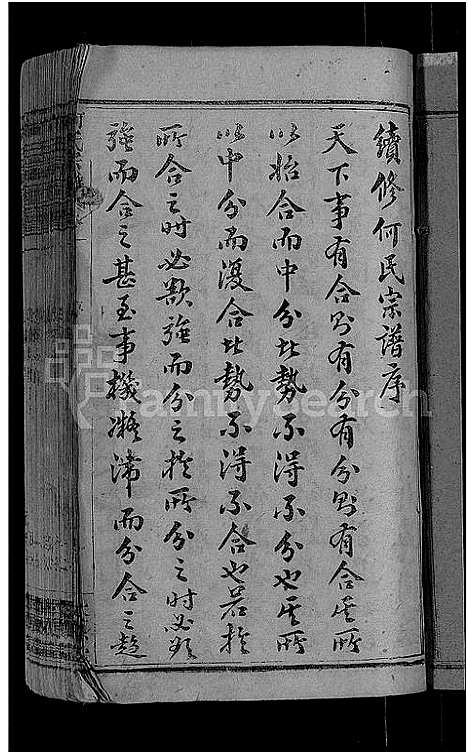 續修何氏宗譜序
天下事有合則有分有分則有合其所
以始合而中分此勢不得不分也其所
以中分而復合此勢不得不合也若於
所合之時必欲強而分之於所分之時必欲
強而合之甚至事機凝滯而分合之趨
FamilySearch